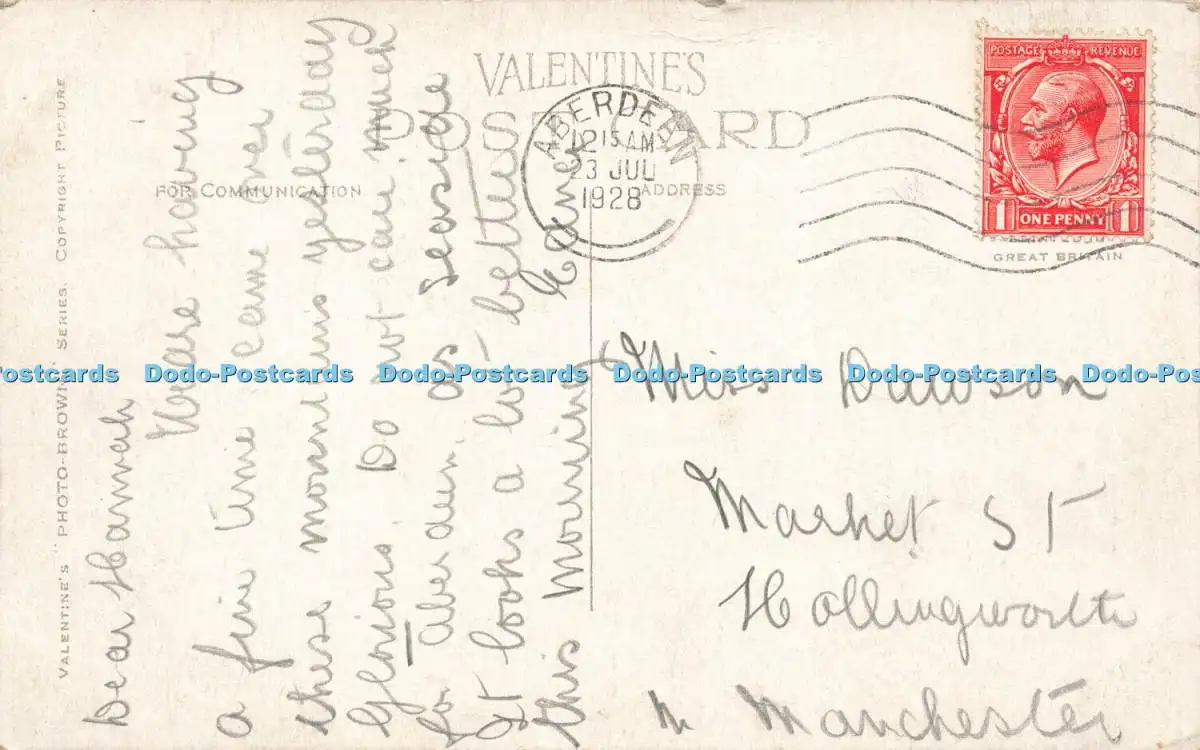 VALENTINE'S
POST CARD
FOR COMMUNICATION
ADDRESS
VALENTINE'S "PHOTO-BROWN" SERIES. COPYRIGHT PICTURE
ABERDEEN
12 15 AM
23 JUL
1928
POSTAGE REVENUE
1 ONE PENNY 1
GREAT BRITAIN
Dear Hannah
We are having
a fine time came over
these mountains yesterday
Glorious. Do not care much
for Aberdeen as seaside
It looks a lot better
this morning
Miss Dawson
Market St
Hollingworth
Nr Manchester
Dodo-Postcards Dodo-Postcards Dodo-Postcards Dodo-Postcards Dodo-Postcards